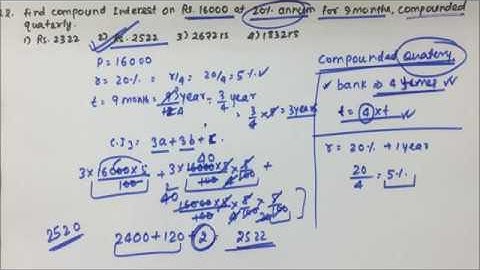 2. find compound Interest on Rs. 16000 at 20% annum for 9 months, compounded
quaterly.
1) Rs. 2322 2) Rs. 2522 3) 2672rs 4) 1832rs
P = 16000
r = 20% = r/4 = 20/4 = 5%
t = 9 month = 9/12 year = 3/4 year
= 3/4 × 4 = 3 year
C.I = 3a + 3b + c
3 × 16000 × 5/100 + 3 × 16000 × 5/100 × 5/100 +
40
16000 × 5/100 × 5/100 × 5/100
2400 + 120 + 2 = 2522
2520
Compounded Quatery
bank = 4 times
t = 4 × t
r = 20% → 1 year
20/4 = 5%